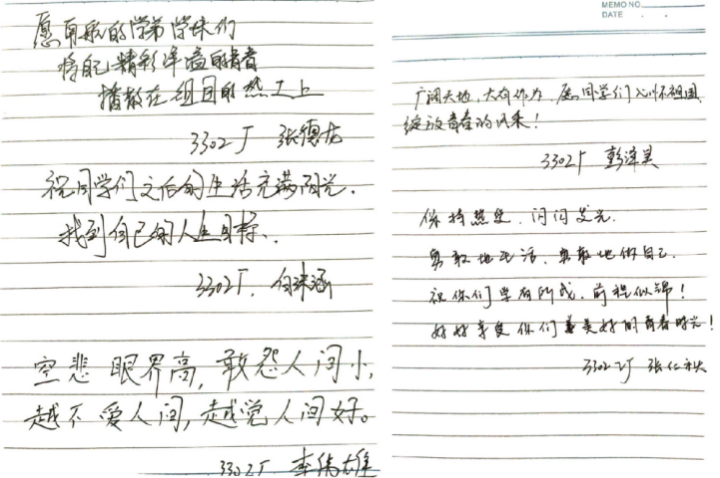 愿有航的学弟学妹们
将自己精彩洋溢的青春
播散在祖国的热土上
3302厂 张德龙
祝同学们之后的生活充满阳光.
找到自己的人生目标.
3302厂. 白
空悲眼界高,敢怨人间小,
越不爱人间,越觉人间好。
3302厂 李伟雄
MEMO NO.
DATE . .
广阔天地,大有作为 愿同学们
绽放青春的风采!
3302厂 彭泽昊
保持热爱,闪闪发光.
勇敢地生活、勇敢地做自己.
祝你们学有所成,前程似锦!
好好享受你们最美好的青春时光!
3302厂 张仁